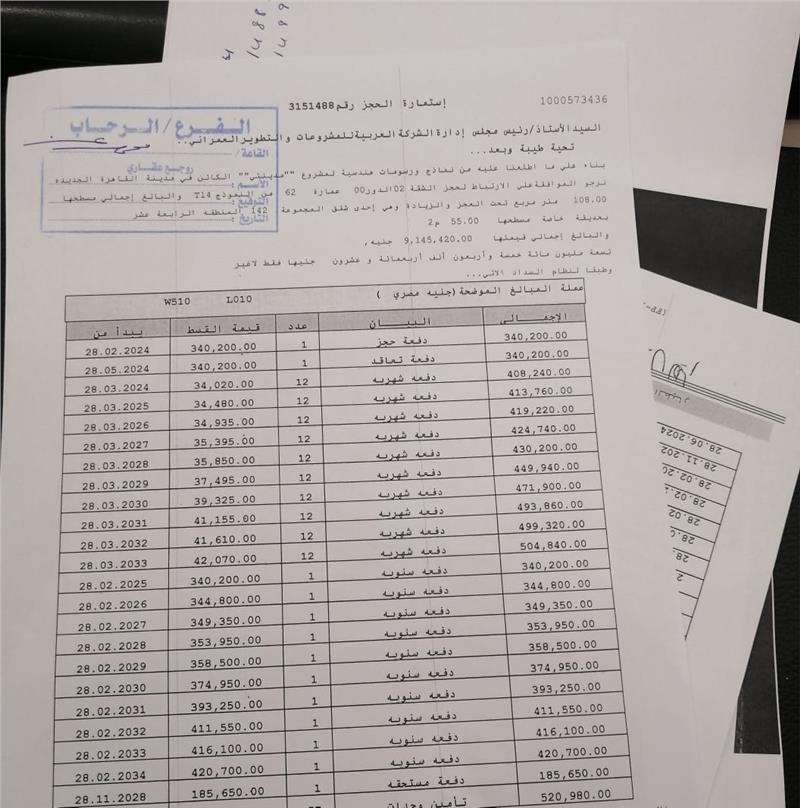 1488
1499
1000573436
إستمارة الحجز رقم 3151488
الفرع/الرحاب
القاعة/
روجع عقاري
الاسم:
التوقيع:
التاريخ:
السيد الأستاذ/رئيس مجلس إدارة الشركة العربية للمشروعات والتطوير العمراني..
تحية طيبة وبعد...
بناء علي ما اطلعنا عليه من نماذج ورسومات هندسية لمشروع ""مدينتي"" الكائن في مدينة القاهرة الجديده
نرجو الموافقة علي الارتباط لحجز الشقة 02 الدور 00 عمارة 62 من النموذج T14 والبالغ إجمالي مسطحها
108.00 متر مربع تحت العجز والزيادة وهي إحدى شقق المجموعة 142 المنطقه الرابعة عشر
بحديقة خاصة مسطحها 55.00 م2
والبالغ إجمالي قيمتها 9,145,420.00 جنيه,
تسعة مليون مائة خمسة وأربعون ألف أربعمائة و عشرون جنيها فقط لاغير
وطبقا لنظام السداد الاتي...
عملة المبالغ الموضحة (جنيه مصري ) L010 W510
الإجمالى البيــان عدد قيمة القسط يبدأ من
340,200.00 دفعة حجز 1 340,200.00 28.02.2024
340,200.00 دفعة تعاقد 1 340,200.00 28.05.2024
408,240.00 دفعه شهريه 12 34,020.00 28.03.2024
413,760.00 دفعه شهريه 12 34,480.00 28.03.2025
419,220.00 دفعه شهريه 12 34,935.00 28.03.2026
424,740.00 دفعه شهريه 12 35,395.00 28.03.2027
430,200.00 دفعه شهريه 12 35,850.00 28.03.2028
449,940.00 دفعه شهريه 12 37,495.00 28.03.2029
471,900.00 دفعه شهريه 12 39,325.00 28.03.2030
493,860.00 دفعه شهريه 12 41,155.00 28.03.2031
499,320.00 دفعه شهريه 12 41,610.00 28.03.2032
504,840.00 دفعه شهريه 12 42,070.00 28.03.2033
340,200.00 دفعه سنويه 1 340,200.00 28.02.2025
344,800.00 دفعه سنويه 1 344,800.00 28.02.2026
349,350.00 دفعه سنويه 1 349,350.00 28.02.2027
353,950.00 دفعه سنويه 1 353,950.00 28.02.2028
358,500.00 دفعه سنويه 1 358,500.00 28.02.2029
374,950.00 دفعه سنويه 1 374,950.00 28.02.2030
393,250.00 دفعه سنويه 1 393,250.00 28.02.2031
411,550.00 دفعه سنويه 1 411,550.00 28.02.2032
416,100.00 دفعه سنويه 1 416,100.00 28.02.2033
420,700.00 دفعه سنويه 1 420,700.00 28.02.2034
185,650.00 دفعة مستحقه 1 185,650.00 28.11.2028
520,980.00 تأمين وحدات
28.06.2024
28.11.202
28.02.20
28.02.
28.02
28.0
28.
2